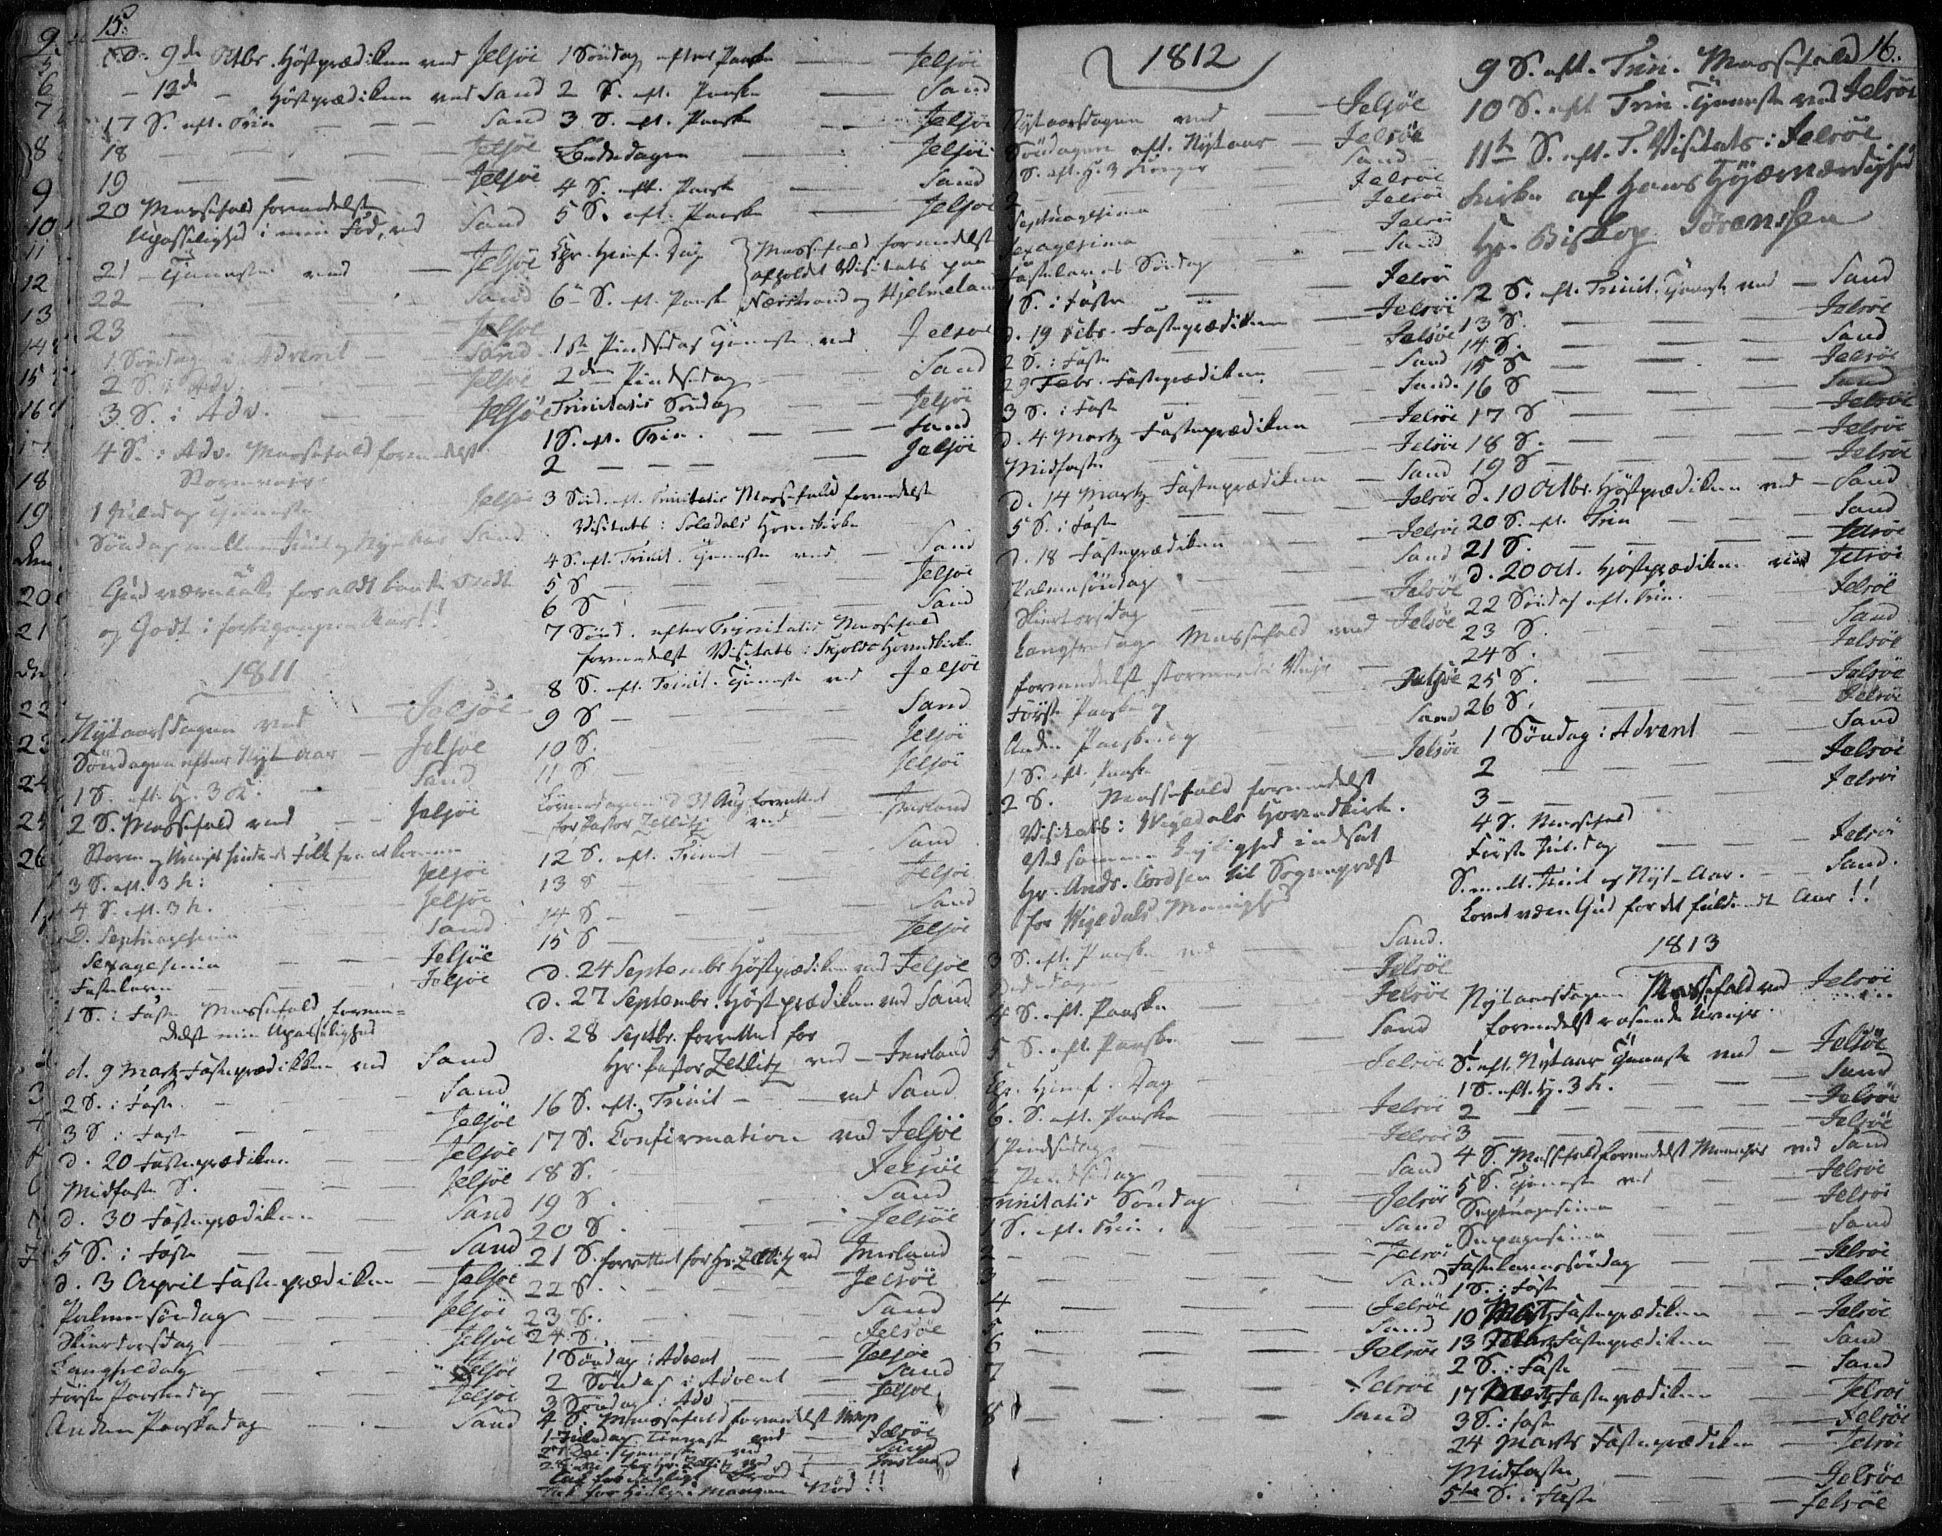 15.
D. 9de Octbr. Höstprædiken ved Jelsöe
- 13de - Höstprædiken ved Sand
17 S. eft. Trin - - - Sand
18 - - - Jelsöe
19 - - - Jelsöe
20 Messefald formedelst
Upasselighed i min Fod, ved Sand
21 - Tjeneste ved - Jelsöe
22 - - - Sand
23 - - - Jelsöe
1 Söndag i Advent - Sand
2 S. i Adv. - Jelsöe
3 S. i Adv. - Jelsöe
4 S. i Adv. Messefald formedelst
Stormveir
1 Juledag Tjeneste Jelsöe
Söndag mellem Juul og Nytaar Sand
Gud være Tak for aldt
og Godt i forbigangne Aar!!
1811
Nytaarsdagen ved - Jelsöe
Söndagen efter Nyt-Aar - Jelsöe
1 S. eft. H. 3 K. - Sand
2 S. Messefald ved - Jelsöe
Storm og Folk fra at komme
3 S. eft. 3 h: - Jelsöe
4 S. eft. 3 h. - Jelsöe
D. Septuagesima - Sand
Sexagesima - - Jelsöe
Fastelavn - - Jelsöe
1 S. i Faste Messefald formedelst min Upasselighed
d. 9 Marts Fasteprædikken ved Sand
2 S. i Faste - - Sand
3 S. i Faste - - Jelsöe
d. 20 Fasteprædiken - Jelsöe
Midfaste S. - - Jelsöe
d. 30 Fasteprædiken - Sand
5 S. i Faste - - Sand
d. 3 April Fasteprædiken - Jelsöe
Palmesöndag - - Jelsöe
Skiertorsdag - - Jelsöe
Langfredag - - Jelsöe
Förste Paaskedag - Jelsöe
Anden Paaskedag - - Sand
1 Söndag efter Paaske - Jelsöe
2 S. eft. Paaske - Sand
3 S. eft. Paaske - Jelsöe
Bededagen - - Jelsöe
4 S. eft. Paaske - Sand
5 S. eft. Paaske - Jelsöe
Chr. Himf. Dag } Messefald formedelst
afholdt Visitats paa
6te S. eft. Paaske Nærstrand og Hjelmeland
1ste Pindsedag Tjeneste ved Jelsöe
2den Pindsedag - - Sand
Trinitatis Söndag - - Jelsöe
1 S. eft. Trin. - - Sand
2 - - - Jelsöe
3 Sönd. eft. Trinitatis Messefald formedelst
Visitats i Soledals Hovedkirke
4 S. eft. Trinit. Tjeneste ved - Sand
5 S - - - Jelsöe
6 S - - - Sand
7 Sönd. efter Trinitatis Messefald
formedelst Visitats i Skjolds Hovedkirke
8 S. eft. Trinit. Tjeneste ved Jelsöe
9 S - - - Sand
10 S. - - - Jelsöe
11 S - - - Jelsöe
Löverdagen d. 31 Aug forrettet - Imsland
for Pastor Zetlitz ved
12 S. eft. Trinit - - Sand
13 S - - - Jelsöe
14 S - - - Sand
15 S - - - Jelsöe
D. 24 Septembr. Höstprædiken ved Jelsöe
D. 27 Septembr. Höstprædiken ved Sand
D. 28 Septbr. forrettet for
Hr. Pastor Zetlitz ved - Imsland
16 S. eft. Trinit - - ved Sand
17 S. Confirmation ved Jelsöe
18 S. - - - Jelsöe
19 S. - - - Sand
20 S. - - - Jelsöe
21 S. forrettet for Hr. Zetlitz ved Imsland
22 S. - - - Jelsöe
23 S. - - - Sand
24 S. - - - Jelsöe
1 Söndag i Advent - Jelsöe
2 Söndag i Advent - Sand
3 Söndag i Adv - Jelsöe
4 S. Messefald formedelst
1 Juledag Tjeneste ved - Jelsöe
2 Tjeneste ved - Sand
ved Imsland
Tak for dagligt Bröd
Tak for Hielp i mangen Nöd!!
1812
Nytaarsdagen ved - Jelsöe
Söndagen eft. Nytaar - Jelsöe
1 S. eft. H. 3 Konger Sand
2 - - - Jelsöe
Septuagesima - Jelsöe
Sexagesima - Jelsöe
Fastelavns Söndag - Sand
1 S. i Faste - Jelsöe
d. 19 Febr. Fasteprædiken - Jelsöe
2 S. i Faste - Jelsöe
29 Febr. Fasteprædiken - Sand
3 S. i Faste - Sand
d. 4 Marts Fasteprædiken - Jelsöe
Midfaste - Jelsöe
d. 14 Marts Fasteprædiken - Sand
5 S. i Faste - Jelsöe
d. 18 Fasteprædiken - Jelsöe
Palmesöndag - Sand
Skiertorsdag - Jelsöe
Langfredag Messefald ved Jelsöe
formedelst stormende Veir
Förste Paaskedag - Jelsöe
Anden Paaskedag - Sand
1 S. eft. Paaske - Jelsöe
2 S. Messefald formedelst
Visitats i Vigedals Hovedkirke.
Ved samme Leylighed indsat
Hr. Ands. Cordsen til Sognepræst
for Vigedals Menighed
3 S. eft. Paaske ved - Sand.
Bededagen - Jelsöe
4 S. eft. Paaske - Jelsöe
5 S. eft. Paaske - Sand
Chr. Himf. Dag - Jelsöe
6. S. eft. Paaske - Jelsöe
1 Pindsedag - Jelsöe
2 Pindsedag - Sand
Trinitatis Söndag - Jelsöe
1 S. eft. Trin. - Sand
2 - - - Jelsöe
3 - - - Sand
4 - - - Jelsöe
5 - - - Sand
6 - - - Jelsöe
7 - - - Jelsöe
8 - - - Sand
16.
9 S. eft. Trin. Messefald
10 S. eft Trin. Tjeneste ved Jelsöe
11te S. eft. T. Visitats i Jelsöe
Kirke af Hans Höjærværdighed
Hr. Biskop Sörensen
12 S. eft. Trinit. Tjeneste ved - Sand
13 S. - - - Jelsöe
14 S. - - - Sand
15 S - - - Jelsöe
16 S - - - Sand
17 S - - - Jelsöe
18 S. - - - Jelsöe
19 S - - - Jelsöe
d. 10 Octbr. Höstprædiken ved - Sand
20 S. eft. Trin - - Sand
21 S. - - - Jelsöe
d. 20 Oct. Höstprædiken ved Jelsöe
22 Söndag eft. Trin. - Jelsöe
23 S. - - - Sand
24 S. - - - Jelsöe
25 S. - - - Jelsöe
26 S. - - - Jelsöe
1 Söndag i Advent - Sand
2 - - - Jelsöe
3 - - - Jelsöe
4 S. Messefald
Förste Juledag - - Jelsöe
S. mell. Juul og Nyt-Aar. - Sand.
Lovet være Gud for det fuldendte Aar!!
1813
Nytaarsdagen Messefald ved Jelsöe
formedelst rasende Uveyr.
S. eft. Nytaar Tjeneste ved - Jelsöe
1 S. eft. H. 3 h. - Sand
2 - - - Jelsöe
3 - - - Jelsöe
4 S. Messefald formedelst ved Sand
5 S. Tjeneste ved - Jelsöe
Septuagesima - - Jelsöe
Sexagesima - - Sand
Fastelavnssöndag - - Jelsöe
1 S. i Faste - - Jelsöe
10 Marts Fasteprædiken - Jelsöe
13 Fasteprædiken - Sand
2 S. i Faste - - Sand
17 Marts Fasteprædiken - Jelsöe
3 S. i Faste - - Jelsöe
24 Marts Fasteprædiken - Jelsöe
Midfaste - - Jelsöe
5te S. i Faste - - Jelsöe